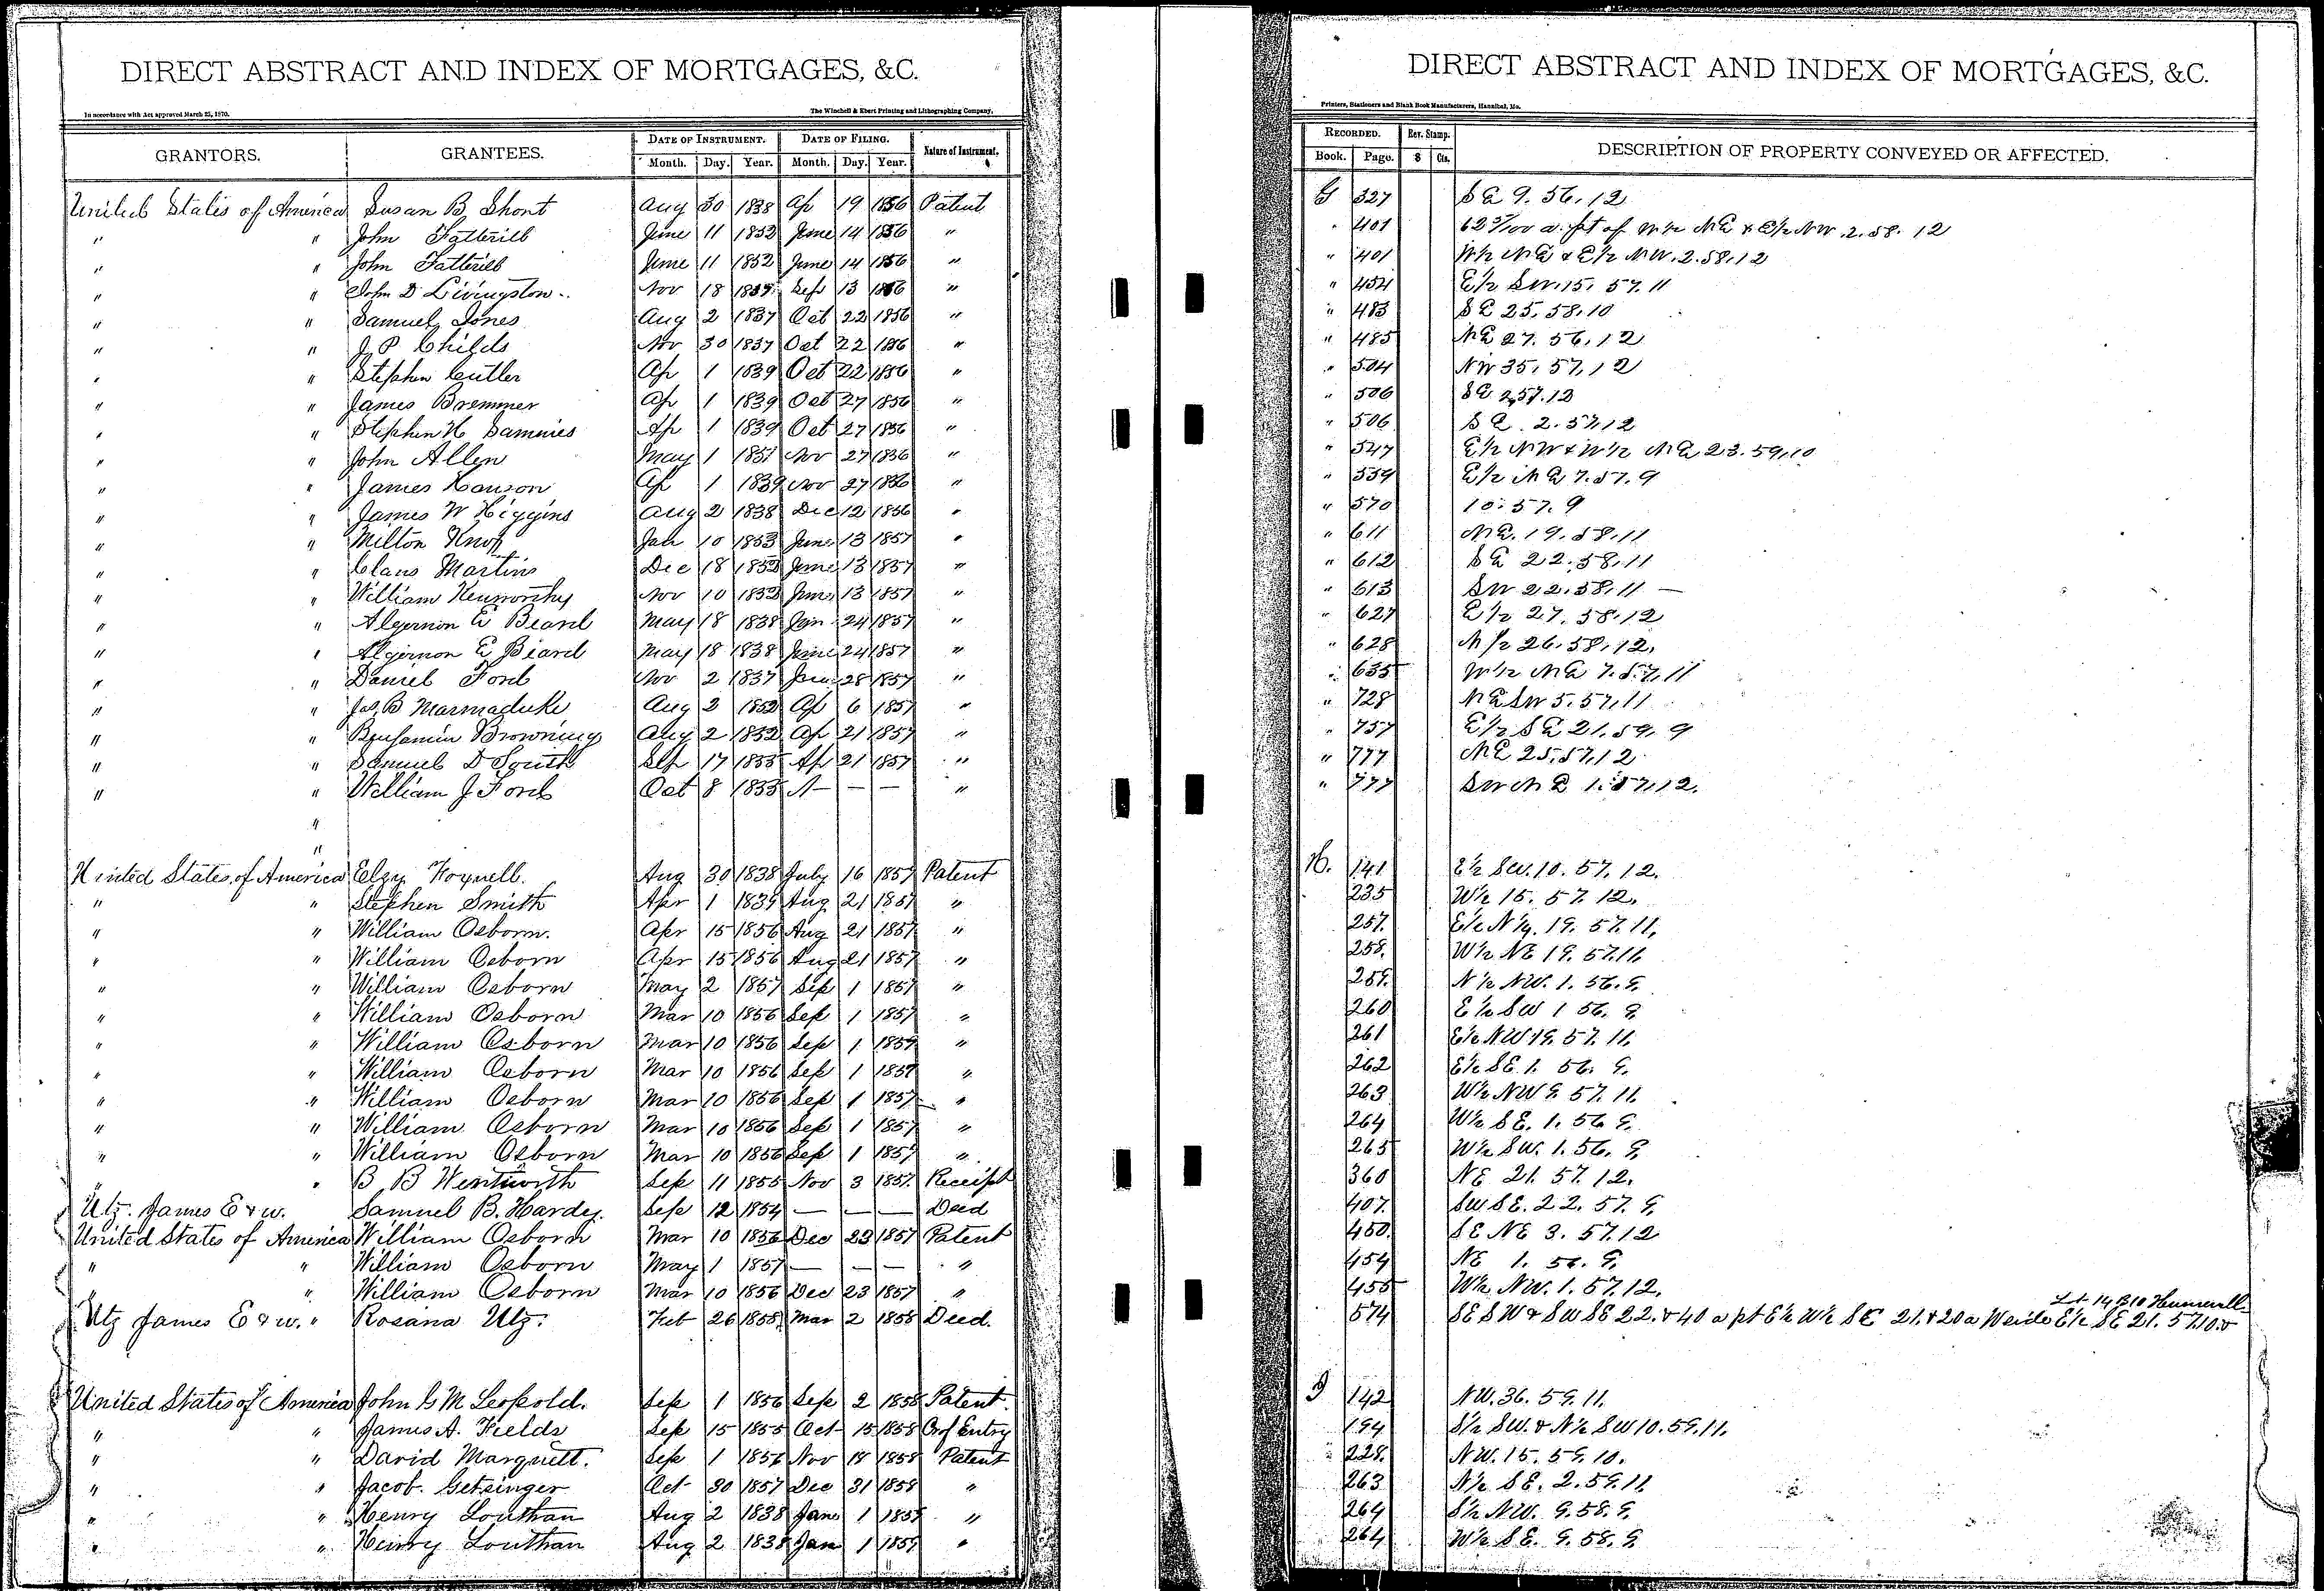 DIRECT ABSTRACT AND INDEX OF MORTGAGES, &C.
In accordance with Act approved March 25, 1870. The Winchell & Ebert Printing and Lithographing Company,
GRANTORS. GRANTEES. DATE OF INSTRUMENT. DATE OF FILING. Nature of Instrument.
Month. Day. Year. Month. Day. Year.
United States of America Susan B Short Aug 30 1838 Ap 19 1856 Patent
" " John June 11 1852 June 14 1856 "
" " John June 11 1852 June 14 1856 "
" " John D Livingston Nov 18 Sep 13 1856 "
" " Samuel Jones Aug 2 1837 Oct 22 1856 "
" " J. P Childs Nov 30 1837 Oct 22 1856 "
" " Stephen Cutler Ap 1 1839 Oct 22 1856 "
" " James Bremmer Ap 1 1839 Oct 27 1856 "
" " Stephen H Sammies Ap 1 1839 Oct 27 1856 "
" " John Allen May 1 Nov 27 1856 "
" " James Ap 1 1839 Nov 27 1856 "
" " James W Higgins Aug 2 1838 Dec 12 1856 "
" " Milton Knox Jan 10 1853 June 13 1857 "
" " Claus Martins Dec 18 1852 June 13 1857 "
" " William Kenworthy Nov 10 1852 June 13 1857 "
" " Algernon E Beard May 18 1838 Jun 24 1857 "
" " Algernon E Beard May 18 1838 June 24 1857 "
" " Daniel Ford Nov 2 1837 Jun 28 1857 "
" " Jas. B Marmaduke Aug 2 1852 Ap 6 1857 "
" " Benjamin Browning Aug 2 1832 Ap 21 1857 "
" " Samuel D South Sep 17 1855 Ap 21 1857 "
" " William J Ford Oct 8 1855 — — "
"
"
United States of America Elzy Foxwell. Aug 30 1838 July 16 1857 Patent
" " Stephen Smith Apr 1 1839 Aug 21 1857 "
" " William Osborn. Apr 15 1856 Aug 21 1857 "
" " William Osborn Apr 15 1856 Aug 21 1857 "
" " William Osborn May 2 1857 Sep 1 1857 "
" " William Osborn Mar 10 1856 Sep 1 1857 "
" " William Osborn Mar 10 1856 Sep 1 1857 "
" " William Osborn Mar 10 1856 Sep 1 1857 "
" " William Osborn Mar 10 1856 Sep 1 1857 "
" " William Osborn Mar 10 1856 Sep 1 1857 "
" " William Osborn Mar 10 1856 Sep 1 1857 "
" " B B Wentworth Sep 11 1855 Nov 3 1857. Receipt
Utz. James E & w. Samuel B. Hardy. Sep 12 1854 — — — Deed
United States of America William Osborn Mar 10 1856 Dec 23 1857 Patent
" " William Osborn May 1 1857 — — — "
" " William Osborn Mar 10 1856 Dec 23 1857 "
Utz James E & w. " Rosana Utz. Feb 26 1858 Mar 2 1858 Deed.
United States of America John G M Leopold. Sep 1 1856 Sep 2 1858 Patent.
" " James A. Fields Sep 15 1855 Oct 15 1858 Entry
" " David Marquett. Sep 1 1856 Nov 18 1858 Patent
" " Jacob. Getsinger Oct 30 1857 Dec 31 1858 "
" " Henry Louthan Aug 2 1838 Jan 1 1859 "
" " Henry Louthan Aug 2 1838 Jan 1 1859 "
DIRECT ABSTRACT AND INDEX OF MORTGAGES, &C.
Printers, Stationers and Blank Book Manufacturers, Hannibal, Mo.
RECORDED. Rev. Stamp. DESCRIPTION OF PROPERTY CONVEYED OR AFFECTED.
Book. Page. $ Cts.
G 327 SE 9. 56. 12
" 401 a. pt of W½ NE & E½ NW. 2. 58. 12
" 401 W½ NE & E½ NW. 2. 58. 12
" 454 E½ SW. 15. 57. 11
" 483 SE 25. 58. 10
" 485 NE 27. 56. 12
" 504 NW 35. 57. 12
" 506 SE 2. 57. 12
" 506 SE. 2. 57. 12
" 547 E½ NW & W½ NE 23. 59. 10
" 559 E½ NE 7. 57. 9
" 570 10. 57. 9
" 611 NE. 19. 58. 11
" 612 SE 22. 58. 11
" 613 SW 22. 58. 11 —
" 627 E½ 27. 58. 12
" 628 N½ 26. 58. 12.
" 635 W½ NE 7. 57. 11
" 728 NE SW 5. 57. 11
" 757 E½ SE 21. 59. 9
" 777 NE 25. 57. 12
" 777 SW NE 1. 57. 12.
H. 141 E½ SW. 10. 57. 12.
235 W½ 15. 57. 12.
257. E½ 19. 57. 11.
258. W½ NE 19. 57. 11.
259. N½ NW. 1. 56. 9.
260 E½ SW 1 56. 9.
261 E½ NW 19. 57. 11.
262 E½ SE. 1. 56. 9.
263 W½ NW 9. 57. 11.
264 W½ SE. 1. 56. 9.
265 W½ SW. 1. 56. 9.
360 NE 21. 57. 12.
407. SW SE. 22. 57. 9.
450. SE NE 3. 57. 12
454 NE 1. 56. 9.
455 W½ NW. 1. 57. 12.
Lot 14 B 10 Hunnewell
574 SE SW & SW SE 22. & 40 a pt E½ W½ SE 21. & 20 a W side E½ SE 21. 57. 10. &
I 142 NW. 36. 59. 11.
194 S½ SW. & N½ SW 10. 59. 11.
" 228. NW. 15. 59. 10.
263 N½ SE. 2. 59. 11.
264 S½ NW. 9. 58. 9.
264 W½ SE. 9. 58. 9.